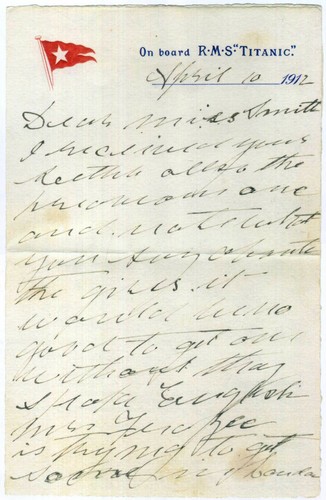 On board R·M·S "TITANIC."
April 10 1912
Dear Miss Smith
I received your
letter also the
previous one
and note what
you say about
the girls. it
would be no
good to get one
without they
speak English
Mrs
is trying to get
some in